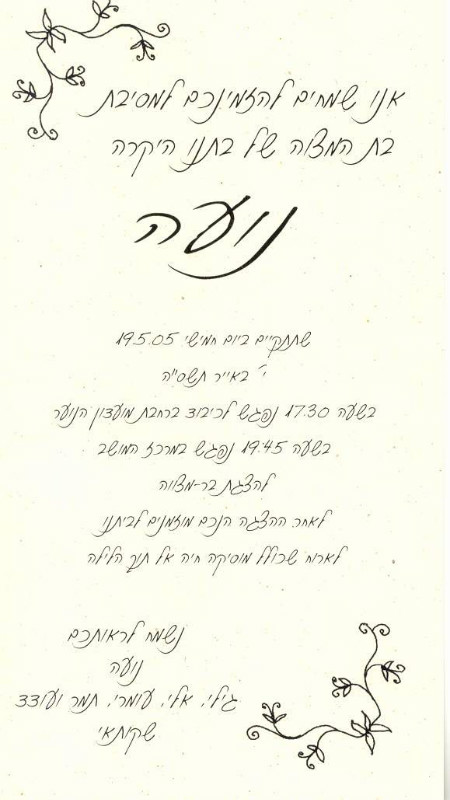 אנו שמחים להזמינכם למסיבת
בת המצוה של בתנו היקרה
נועה
שתתקיים ביום חמישי 19.5.05
י' באייר תשס"ה
בשעה 17.30 נפגש לכיבוד ברחבת מועדון הנוער
בשעה 19.45 נפגש במרכז המושב
להצגת בר-מצווה
לאחר ההצגה הנכם מוזמנים לביתנו
לארוח שכולל מוסיקה חיה אל תוך הלילה
נשמח לראותכם
נועה
גילי, אלי, עומרי, תמר ועודד